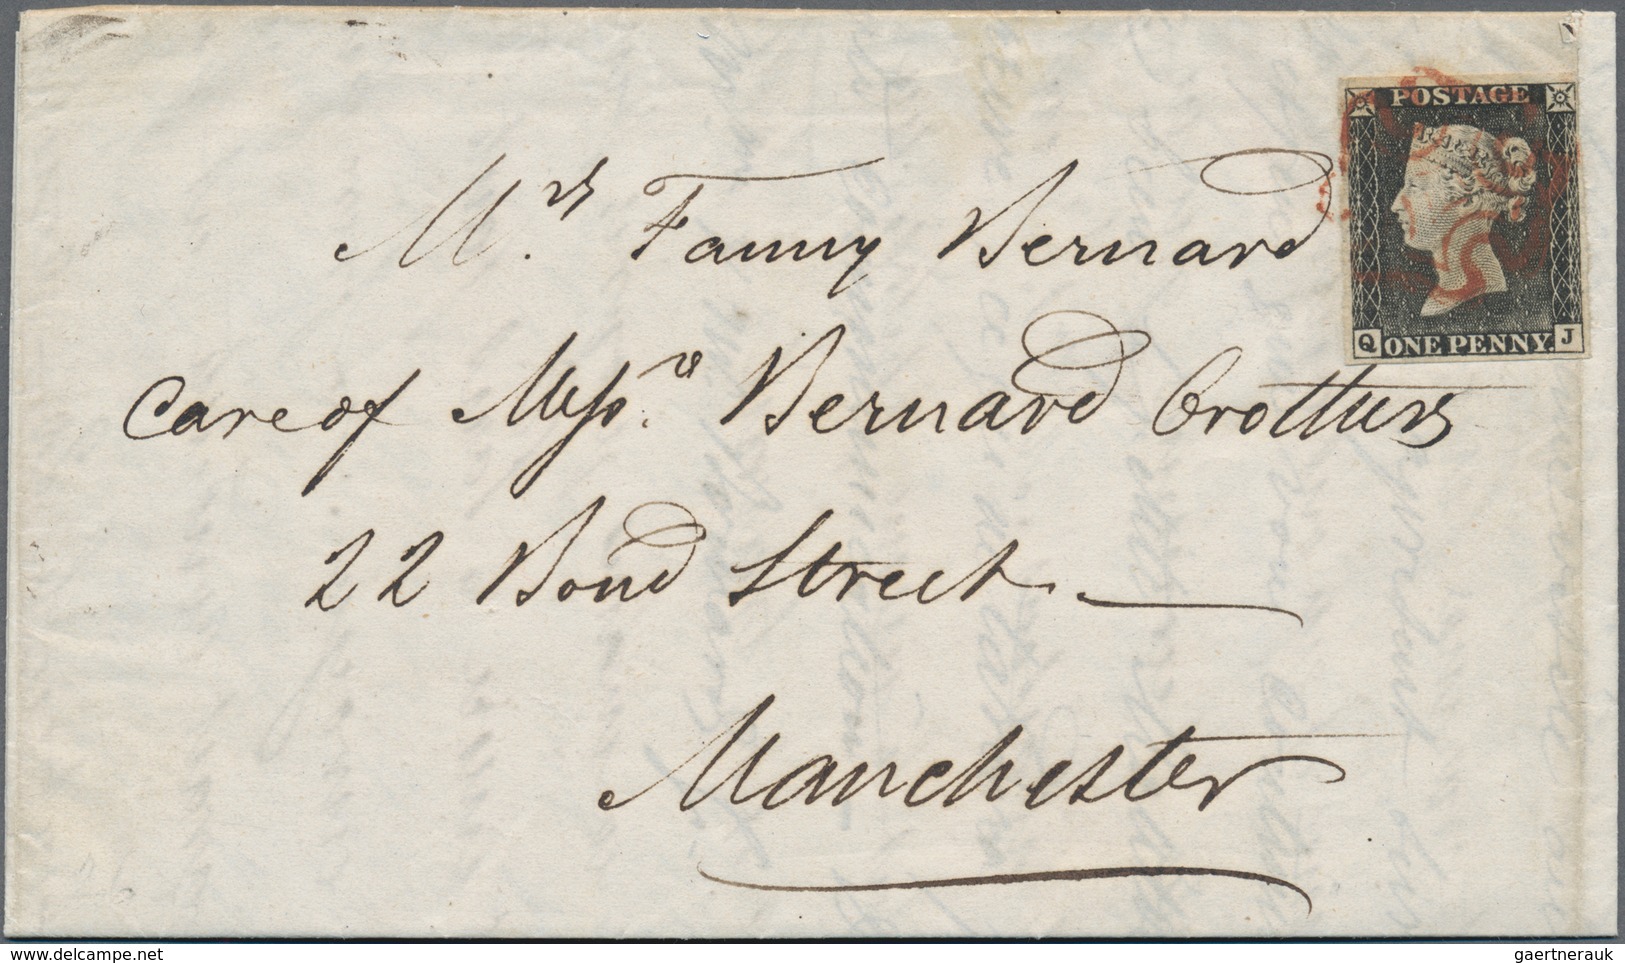 POSTAGE
Q ONE PENNY. J
Mrs Fanny Bernard
care of Messrs Bernard Brothers
22 Bond Street
Manchester
gaertnerauk